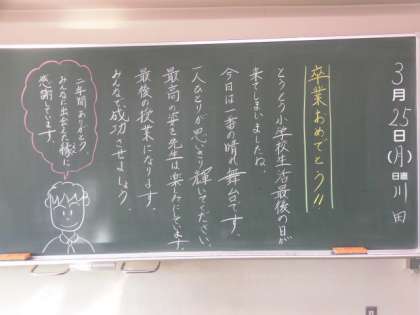 3月25日(月)
日直 川田
卒業おめでとう!!
とうとう小学校生活最後の日が
来てしまいましたね。
今日は一番の晴れ舞台です。
一人ひとりが思いきり輝いてください。
最高の姿を先生は楽しみにしています。
最後の授業になります。
みんなで成功させましょう。
二年間ありがとう。
みんなに出会えた縁に
感謝しています。